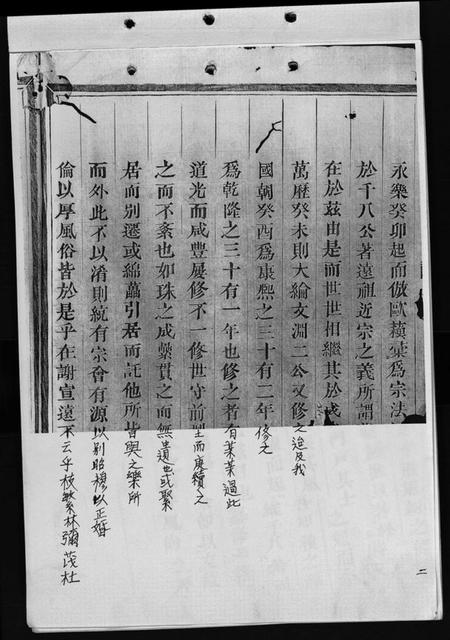 永樂癸卯起而倣歐蘇彙爲宗法
於千八公著遠祖近宗之義所謂
在於茲由是而世世相繼其於
萬曆癸未則大綸文淵二公又修之迨及我
國朝癸酉爲康熙之三十有二年修之
爲乾隆之三十有一年也修之者有某某過此
道光而咸豐屢修不一修世守前型而賡續之
之而不紊也如珠之成縈貫之而無遺也或聚
居而別遷或綿蕝引居而託他所皆與之樂所
而外此不以淆則統有宗會有源以別昭穆以正婚
倫以厚風俗皆於是乎在謝宣遠不云乎枝繁林彌茂杜
二